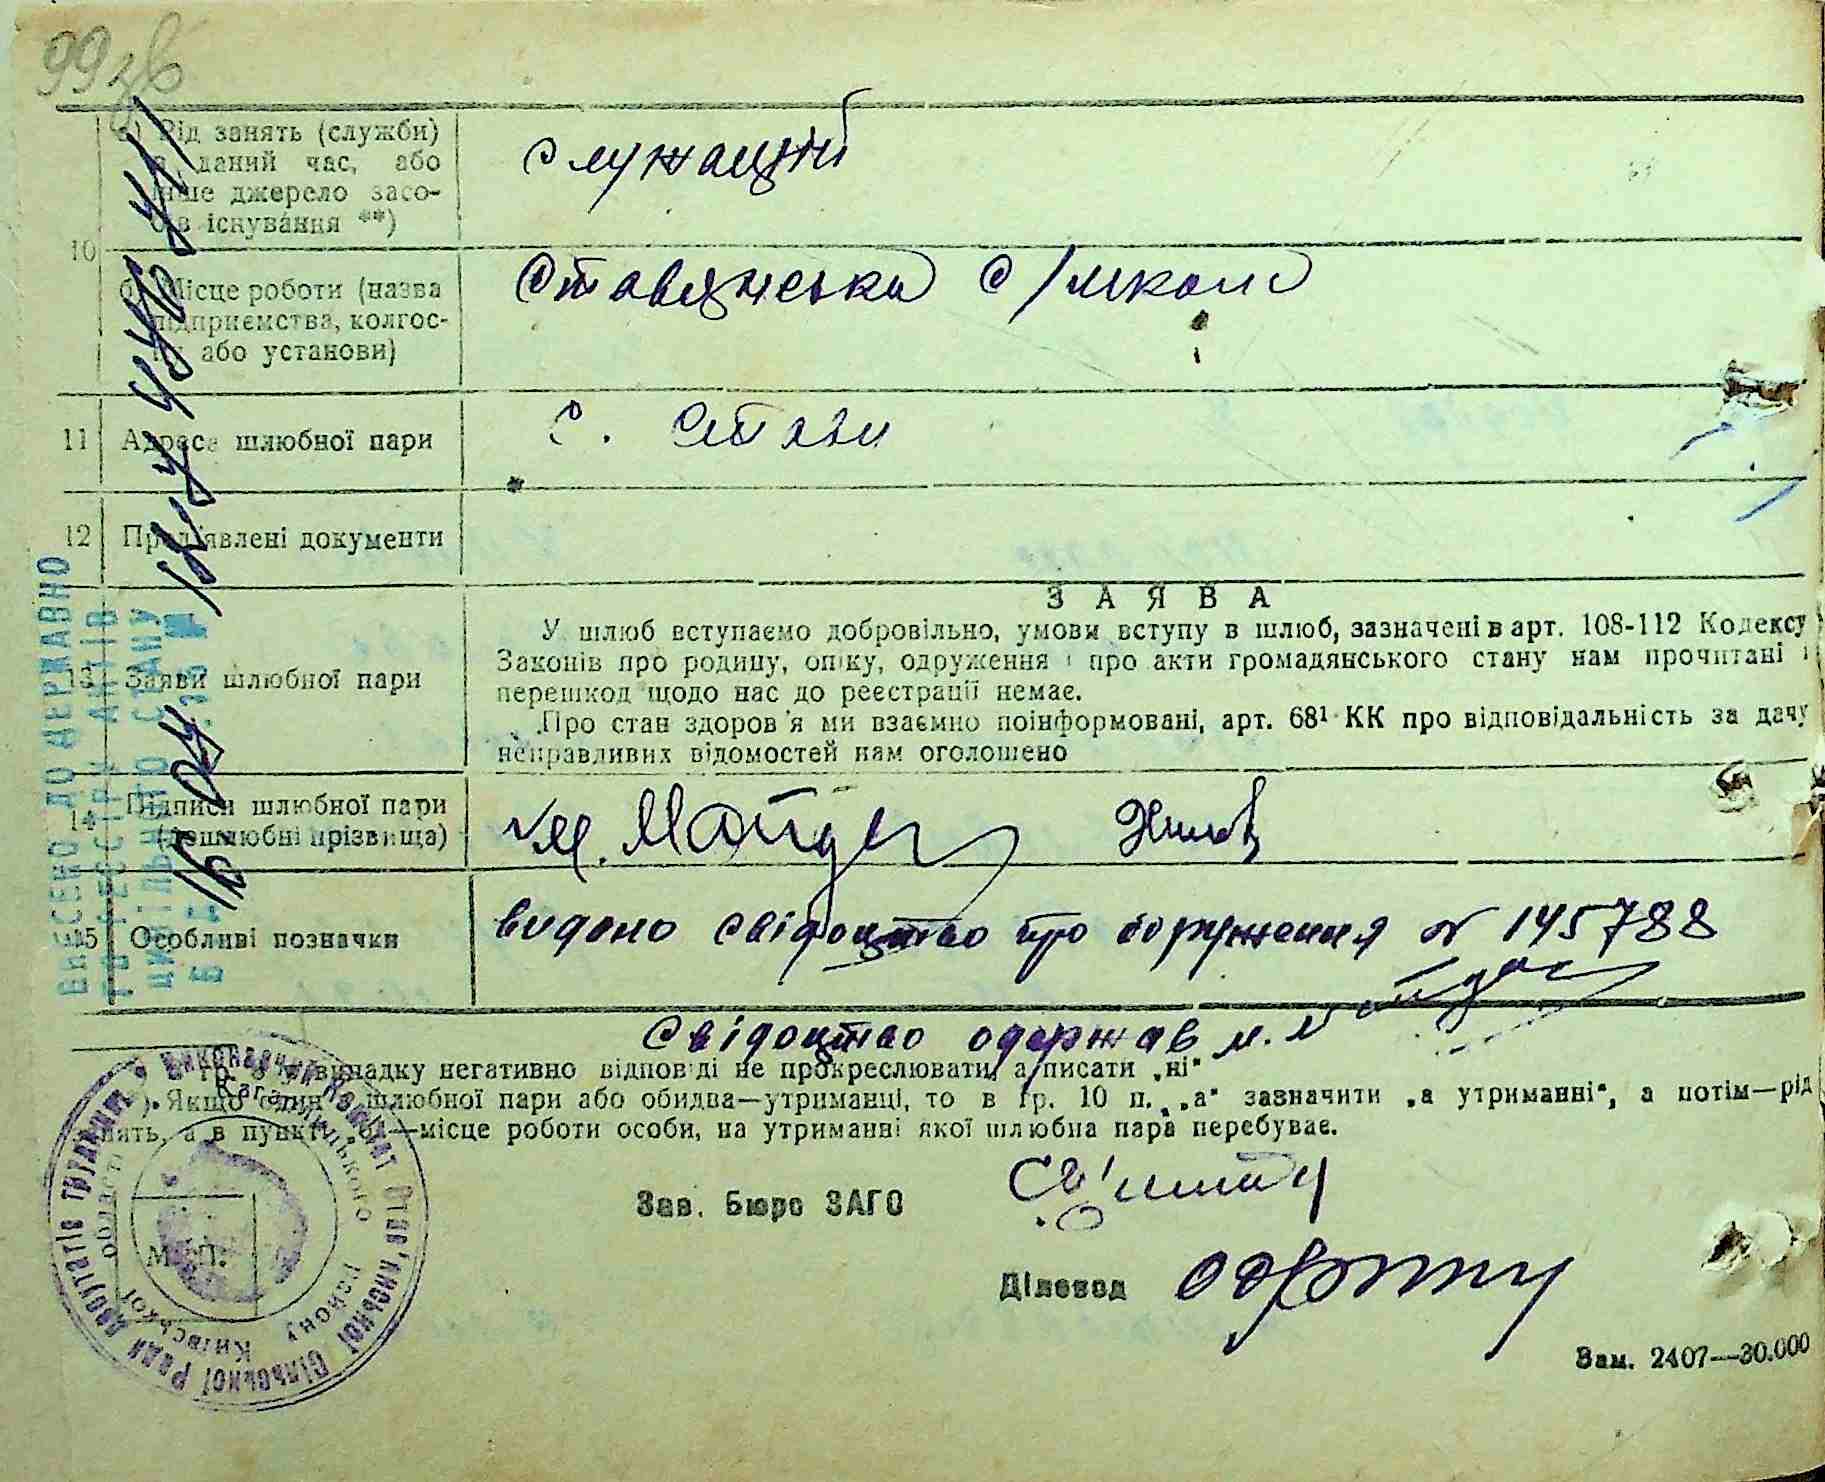 99 зв
10
а) Рід занять (служби)
в даний час, або
інше джерело засо-
бів існування **)
служащий
б) Місце роботи (назва
підприємства, колгос-
пу або установи)
Ставянська с/школа
11 Адреса шлюбної пари
с. Стави
12 Пред'явлені документи
13 Заяви шлюбної пари
ЗАЯВА
У шлюб вступаємо добровільно, умови вступу в шлюб, зазначені в арт. 108-112 Кодексу
Законів про родину, опіку, одруження і про акти громадянського стану нам прочитані і
перешкод щодо нас до реєстрації немає.
Про стан здоров'я ми взаємно поінформовані, арт. 68¹ КК про відповідальність за дачу
неправдивих відомостей нам оголошено
14 Підписи шлюбної пари
(дошлюбні прізвища)
15 Особливі позначки
видано свідоцтво про одруження № 145788
Свідоцтво одержав
*) В гр. 8 у випадку негативно відповіді не прокреслювати, а писати „ні“
**). Якщо один з шлюбної пари або обидва—утриманці, то в гр. 10 п. „а“ зазначити „а утриманні“, а потім—рід
занять, а в пункті „б“—місце роботи особи, на утриманні якої шлюбна пара перебуває.
Зав. Бюро ЗАГС
Діловод
М. П.
Зам. 2407—30.000
ВНЕСЕНО ДО ДЕРЖАВНО
ГО РЕЄСТРУ АКТІВ
ЦИВІЛЬНОГО СТАНУ
Виконавчий Комітет Став'янської Сільської Ради депутатів трудящих
Кагарлицького району Київської області